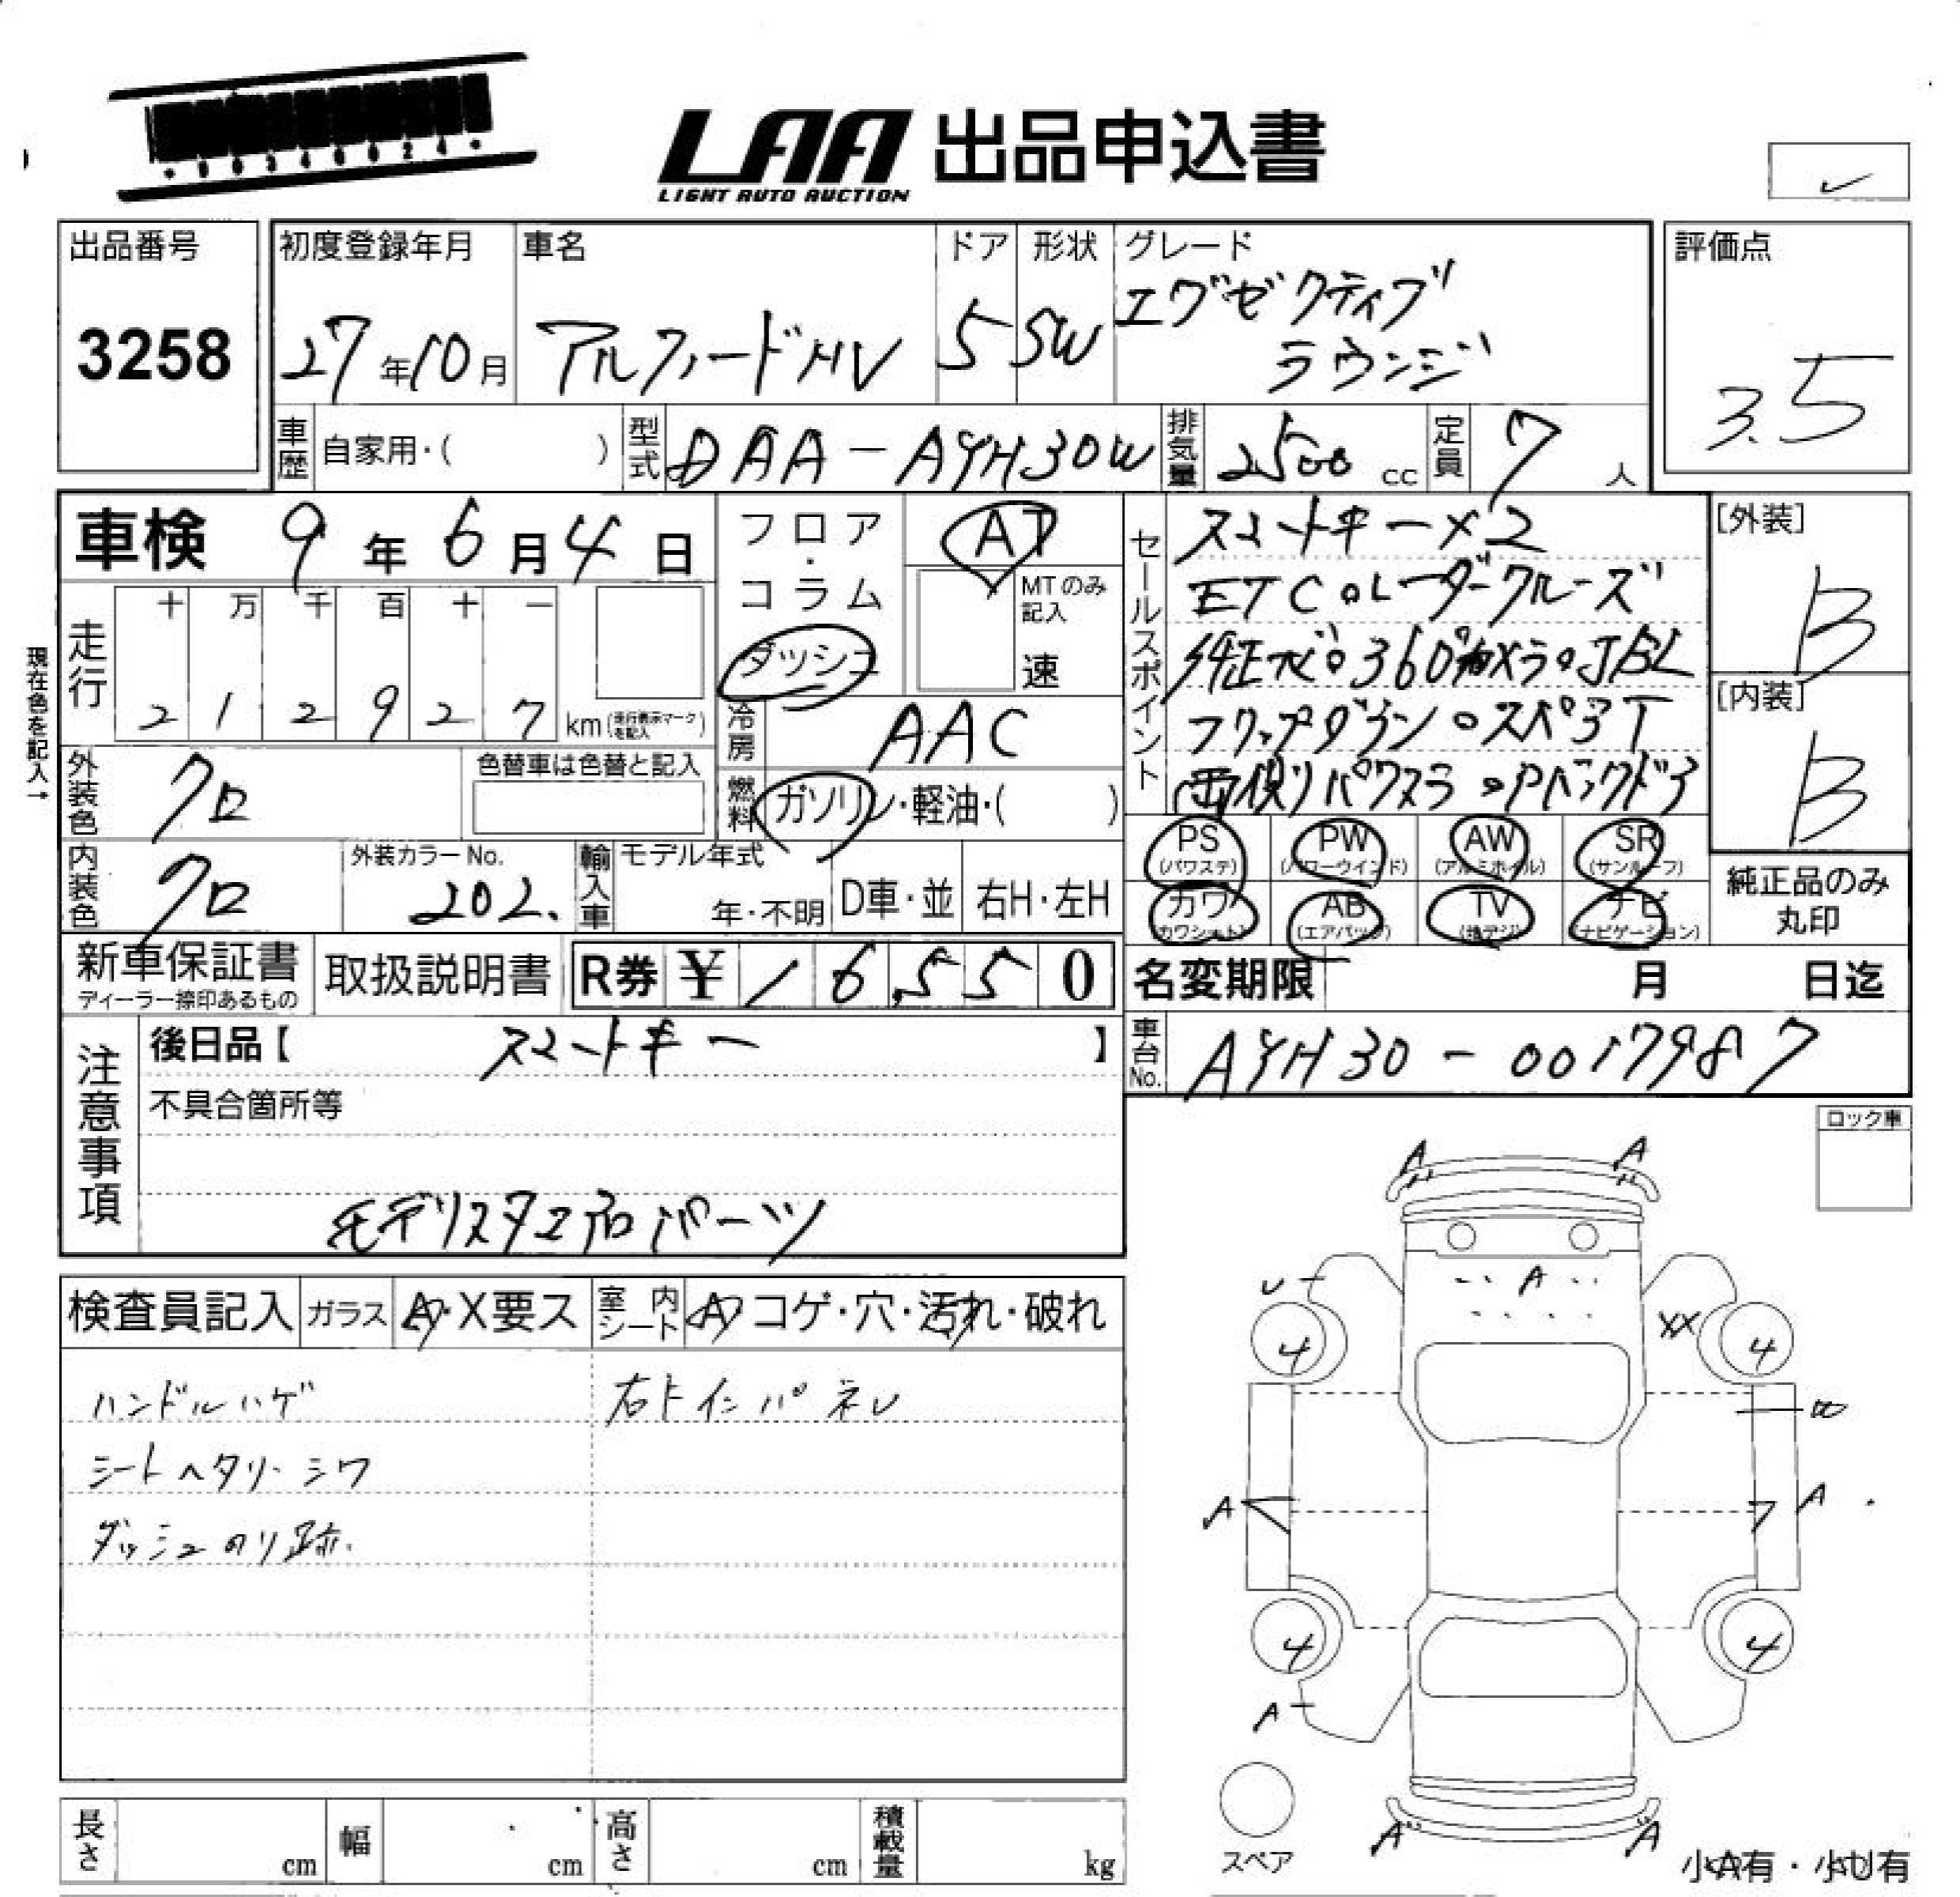 LAA 出品申込書
LIGHT AUTO AUCTION
出品番号
3258
初度登録年月
27年10月
車名
アルファードHV
ドア
5
形状
SW
グレード
エグゼクティブ
ラウンジ
評価点
3.5
車歴 自家用・( )
型式 DAA-AYH30W
排気量 2500 cc
定員 7 人
車検 9年 6月 4日
現在色を記入→
走行
十 万 千 百 十 一
2 1 2 9 2 7 km (走行表示マークを記入)
フロア・コラム
ダッシュ
AT
MTのみ記入
速
冷房 AAC
外装色 クロ
色替車は色替と記入
燃料 ガソリン・軽油・( )
内装色 クロ
外装カラーNo.
202.
輸入車
モデル年式
年・不明
D車・並
右H・左H
セールスポイント
スマートキー×2
ETC。レーダークルーズ
純正ナビ。360°カメラ。JBL
フリップダウン。スペアT
両側パワスラ。Pバックドア
[外装]
B
[内装]
B
PS (パワステ)
PW (パワーウインド)
AW (アルミホイル)
SR (サンルーフ)
カワ (カワシート)
AB (エアバック)
TV (地デジ)
ナビ (ナビゲーション)
純正品のみ
丸印
新車保証書
ディーラー捺印あるもの
取扱説明書
R券 ¥ 16,550
名変期限 月 日迄
車台No. AYH30-0017987
注意事項
後日品【 スマートキー 】
不具合箇所等
モデリスタエアロパーツ
ロック車
検査員記入
ガラス A・X要ス
室内シート A コゲ・穴・汚れ・破れ
ハンドルハゲ
シートヘタリ・シワ
ダッシュノリ跡.
A A
A
XX
4 4
A A
4 4
A
A A
スペア
小A有・小U有
長さ cm
幅 cm
高さ cm
積載量 kg